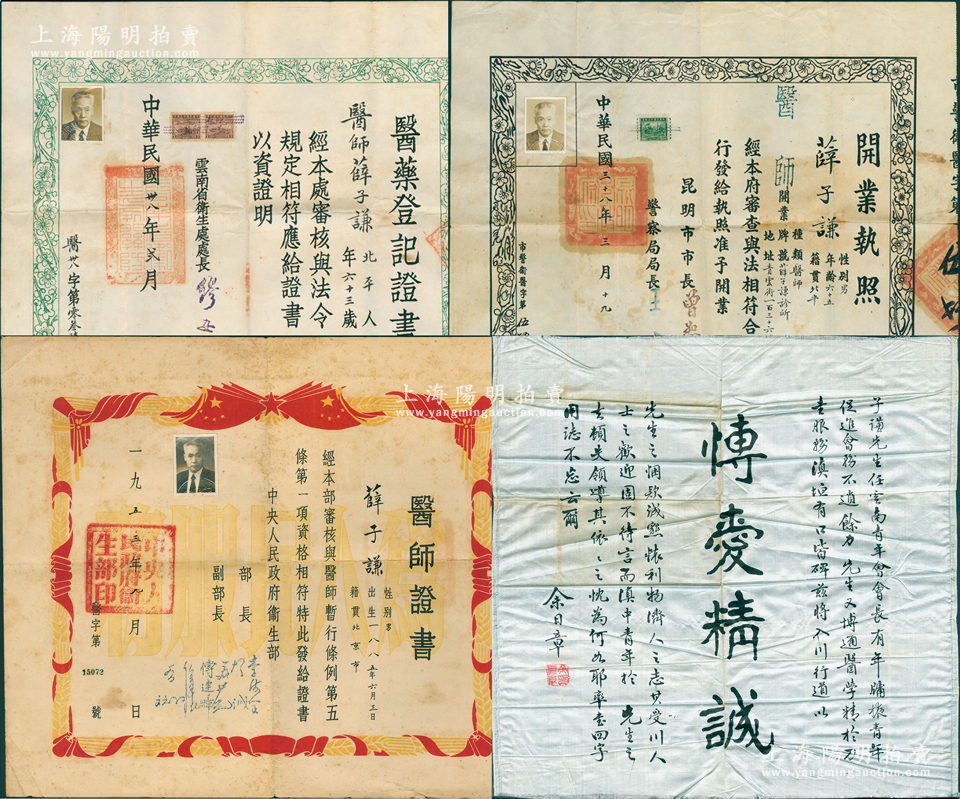 上海陽明拍賣
www.yangmingauction.com
醫藥登記證書
醫師薛子謙
北平人
年六十三歲
經本處審核與法令
規定相符應給證書
以資證明
雲南省衛生處處長
中華民國卅八年弍月
上海陽明拍賣
www.yangmingauction.com
開業執照
薛子謙
性別男
年齡六五
籍貫北平
醫師
開業
種類醫師
牌號薛子謙診所
經本府審查與法相符合
行發給執照准予開業
昆明市市長
警察局局長
中華民國三十八年三月十九
市警衛醫字第
上海陽明拍賣
www.yangmingauction.com
醫師證書
薛子謙
性別男
出生一八八五年六月三日
籍貫北京市
經本部審核與醫師暫行條例第五
條第一項資格相符特此發給證書
中央人民政府衞生部
部長
副部長
一九五三年九月
日
中央人
民政府衞
生部印
醫字第
15072
號
子謙先生任雲南青年會會長有年
促進會務不遺餘力先生又博通醫學精於
服務滇垣有口皆碑茲將入川行道以
博愛精誠
先生之悃款誠懇懷利物濟人之志其受川人
士之歡迎固不待言而滇中青年於先生之
去頓失領導其依之忱為何如耶率書四字
用誌不忘云爾
余日章
上海陽明拍賣
www.yangmingauction.com